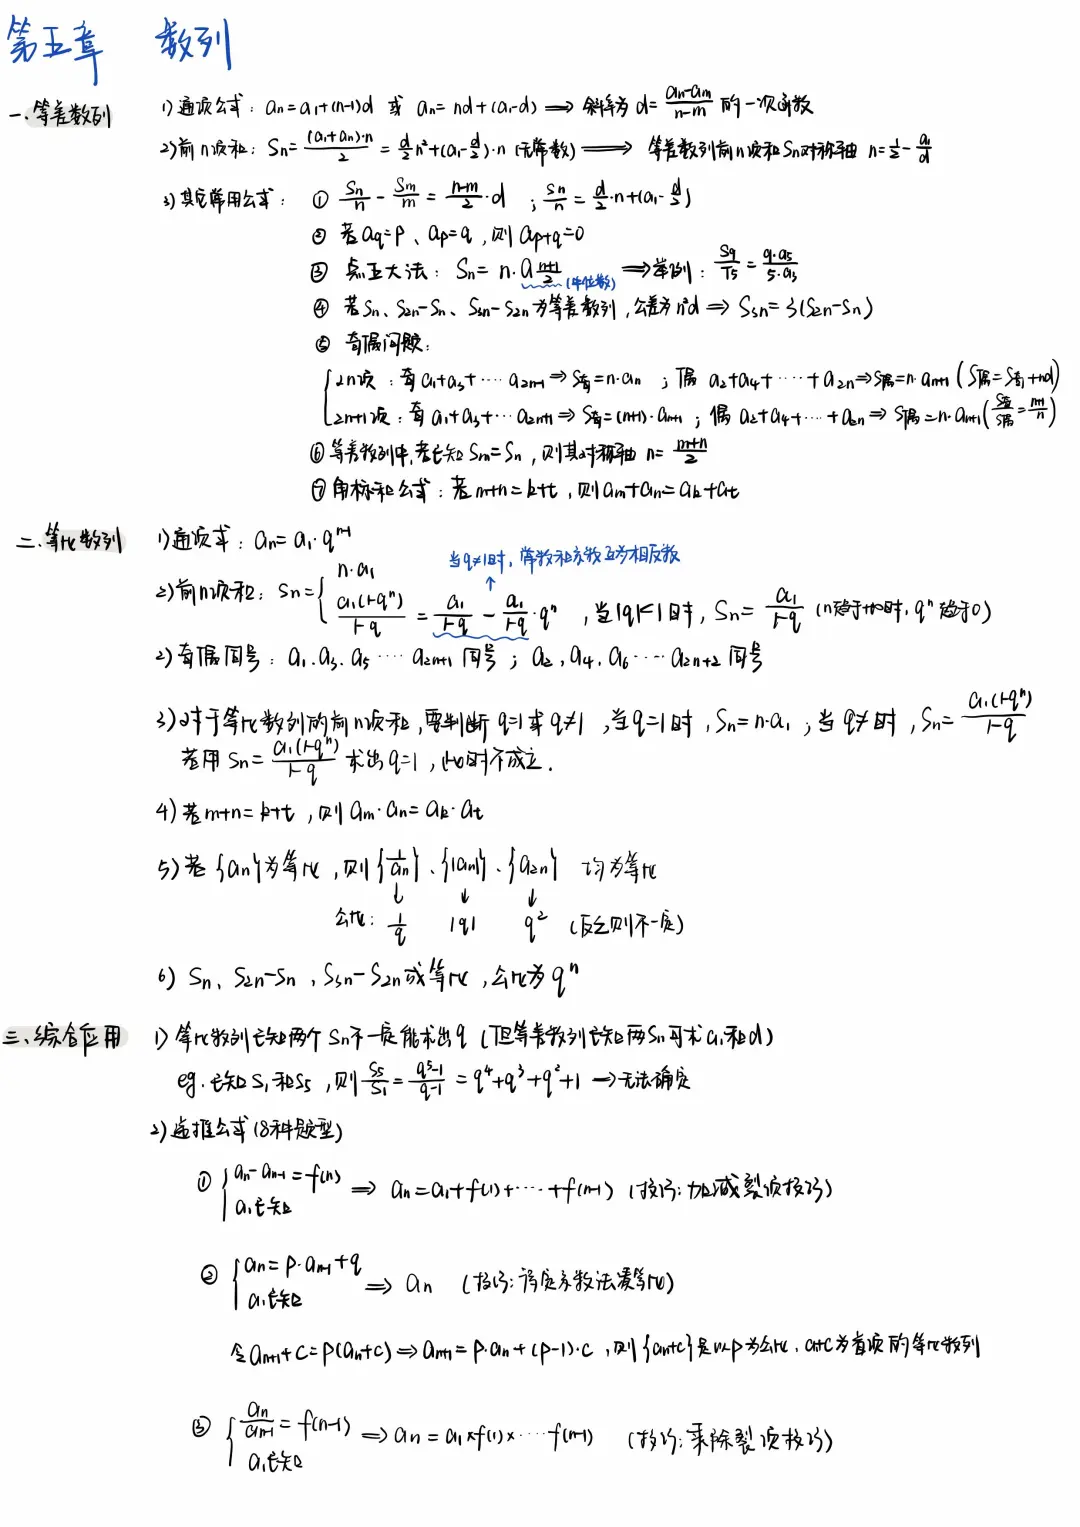 第五章 数列
一、等差数列 1) 通项公式: an=a1+(n-1)d 或 an=nd+(a1-d) ⟹ 斜率为 d=(an-am)/(n-m) 的一次函数
2) 前n项和: Sn=(a1+an)·n/2 = d/2 n²+(a1-d/2)·n (无常数) ⟹ 等差数列前n项和Sn对称轴 n=1/2-a1/d
3) 其它常用公式: ① Sn/n - Sm/m = (n-m)/2·d ; Sn/n = d/2·n+(a1-d/2)
② 若aq=p、ap=q, 则 ap+q=0
③ 点五大法: Sn=n·a(n+1)/2 (中位数) ⟹ 举例: S9/T5 = 9·a5/5·a3
④ 若Sn、S2n-Sn、S3n-S2n为等差数列, 公差为n²d ⟹ S3n=3(S2n-Sn)
⑤ 奇偶问题:
2n项: 奇 a1+a3+⋯a2n-1 ⟹ S奇=n·an ; 偶 a2+a4+⋯⋯+a2n ⟹ S偶=n·an+1 (S偶=S奇+nd)
2n+1项: 奇 a1+a3+⋯a2n+1 ⟹ S奇=(n+1)·an+1 ; 偶 a2+a4+⋯+a2n ⟹ S偶=n·an+1 (S奇/S偶=(n+1)/n)
⑥ 等差数列中,若已知 Sm=Sn, 则其对称轴 n=(m+n)/2
⑦ 角标和公式: 若m+n=k+t, 则am+an=ak+at
二、等比数列 1) 通项式: an=a1·q^(n-1)
当q≠1时, 常数和系数互为相反数
2) 前n项和: Sn={ n·a1
a1(1-q^n)/(1-q) = a1/(1-q) - a1/(1-q)·q^n , 当|q|<1时, Sn=a1/(1-q) (n趋于+∞时, q^n趋于0)
2) 奇偶同号: a1、a3、a5⋯⋯a2n+1 同号 ; a2、a4、a6⋯⋯a2n+2 同号
3) 对于等比数列的前n项和,要判断 q=1或q≠1 ,当q=1时, Sn=n·a1 ; 当q≠时, Sn=a1(1-q^n)/(1-q)
若用 Sn=a1(1-q^n)/(1-q) 求出q=1 , 此时不成立.
4) 若m+n=k+t , 则am·an=ak·at
5) 若{an}为等比, 则{1/an}、{|an|}、{a2n} 均为等比
↓ ↓ ↓
公比: 1/q |q| q² (反之则不一定)
6) Sn、S2n-Sn、S3n-S2n成等比,公比为q^n
三、综合应用 1) 等比数列已知两个Sn不一定能求出q (但等差数列已知两Sn可求a1和d)
eg. 已知S1和S5 , 则 S5/S1 = (q^5-1)/(q-1) = q^4+q^3+q^2+1 → 无法确定
2) 递推公式 (8种题型)
① { an-an-1=f(n) ⟹ an=a1+f(1)+⋯⋯+f(n-1) (技巧: 加减裂项技巧)
a1已知
② { an=p·an-1+q ⟹ an (技巧: 待定系数法凑等比)
a1已知
令an+1+c=p(an+c) ⟹ an+1=p·an+(p-1)·c , 则{an+c}是以p为公比, a1+c为首项的等比数列
③ { an/an-1=f(n-1) ⟹ an=a1×f(1)×⋯⋯f(n-1) (技巧: 乘除裂项技巧)
a1已知